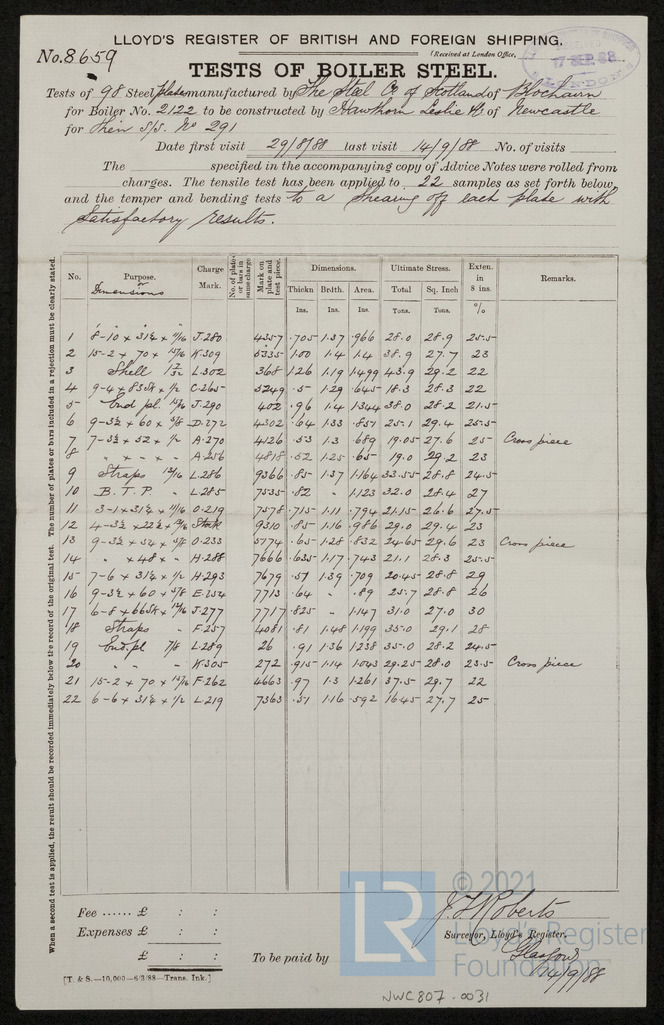 LLOYD'S REGISTER OF BRITISH AND FOREIGN SHIPPING.
No. 8659
(Received at London Office,
17 SEP. 88
LONDON
TESTS OF BOILER STEEL.
Tests of 98 Steel plates manufactured by The Steel Co of Scotland of Blochairn
for Boiler No. 2122 to be constructed by Hawthorn Leslie & Co of Newcastle
for their S/S. No 291
Date first visit 29/8/88 last visit 14/9/88 No. of visits
The specified in the accompanying copy of Advice Notes were rolled from
charges. The tensile test has been applied to 22 samples as set forth below,
and the temper and bending tests to a shearing off each plate with
satisfactory results.
When a second test is applied, the result should be recorded immediately below the record of the original test. The number of plates or bars included in a rejection must be clearly stated.
No. Purpose. or Dimensions Charge Mark. No. of plates or bars in same charge Mark on plate and test piece. Dimensions. Ultimate Stress. Exten. in 8 ins. Remarks.
Thickn Brdth. Area. Total Sq. Inch %
Ins. Ins. Ins. Tons. Tons.
1 8-10 × 31½ × 11/16 J.280 4357 .705 1.37 .966 28.0 28.9 25.5
2 15-2 × 70 × 15/16 K.309 5335 1.00 1.4 1.4 38.9 27.7 23
3 Shell 1 7/32 L.302 368 1.26 1.19 1.499 43.9 29.2 22
4 9-4 × C.265 5249 .5 1.29 .645 18.3 28.3 22
5 End pl. 15/16 J.290 402 .96 1.4 1.344 38.0 28.2 21.5
6 9-3½ × 60 × 5/8 D.272 4302 .64 1.33 .851 25.1 29.4 25.5
7 7-3½ × 52 × ½ A.270 4126 .53 1.3 .689 19.05 27.6 25 Cross piece
8 " × " × " A.256 4818 .52 1.25 .65 19.0 29.2 23
9 Straps 13/16 L.286 9366 .85 1.37 1.164 33.55 28.8 24.5
10 B.T.P. " L.285 7535 .82 " 1.123 32.0 28.4 27
11 3-1 × 31½ × 11/16 O.219 7578 .715 1.11 .794 21.15 26.6 27.5
12 4-3½ × 22½ × 13/16 Stock 9310 .85 1.16 .986 29.0 29.4 23
13 9-3½ × 54 × 5/8 O.233 5174 .65 1.28 .832 24.65 29.6 23 Cross piece
14 " × 48 × " H.288 7666 .635 1.17 .743 21.1 28.3 25.5
15 7-6 × 31½ × ½ H.293 7679 .51 1.39 .709 20.45 28.8 29
16 9-3½ × 60 × 5/8 E.254 7713 .64 " .89 25.7 28.8 26
17 6-8 × × 13/16 J.277 7717 .825 " 1.147 31.0 27.0 30
18 Straps " F.257 4081 .81 1.48 1.199 35.0 29.1 28
19 End. pl 7/8 L.289 26 .91 1.36 1.238 35.0 28.2 24.5
20 " " " K.305 272 .915 1.14 1.043 29.25 28.0 23.5 Cross piece
21 15-2 × 70 × 15/16 F.262 4663 .97 1.3 1.261 37.5 29.7 22
22 6-6 × 31½ × ½ L.219 7363 .51 1.16 .592 16.45 27.7 25
Fee ...... £ : :
Expenses £ : :
£ : :
To be paid by
J. F. Roberts
Surveyor, Lloyd's Register,
Glasgow
14/9/88
[T. & S.—10,000—6/3/88—Trans. Ink.]
NWC807-0031
LR
© 2021
Lloyd's Register
Foundation